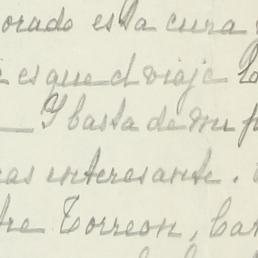 orado esta cura
es que el viaje lo
— Y basta de mi
as interesante.
tre Torreon, Ca